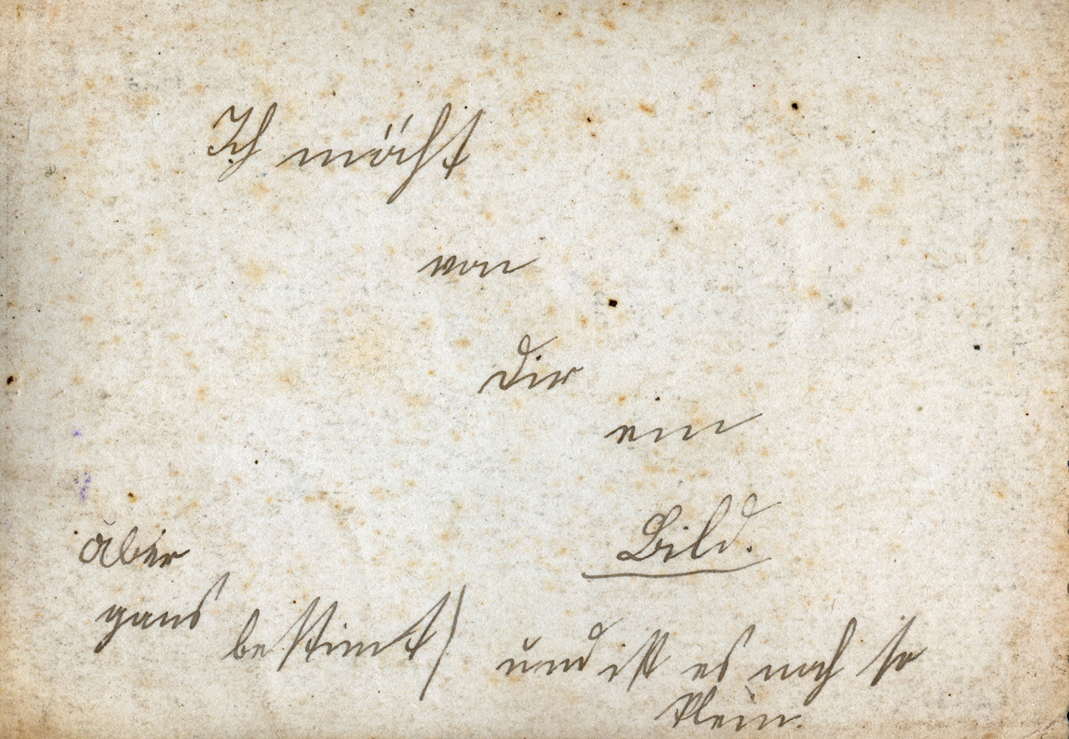 Ich möcht
von
Dir
ein
Bild.
aber
gans bestimt)
und ist es noch so
klein.